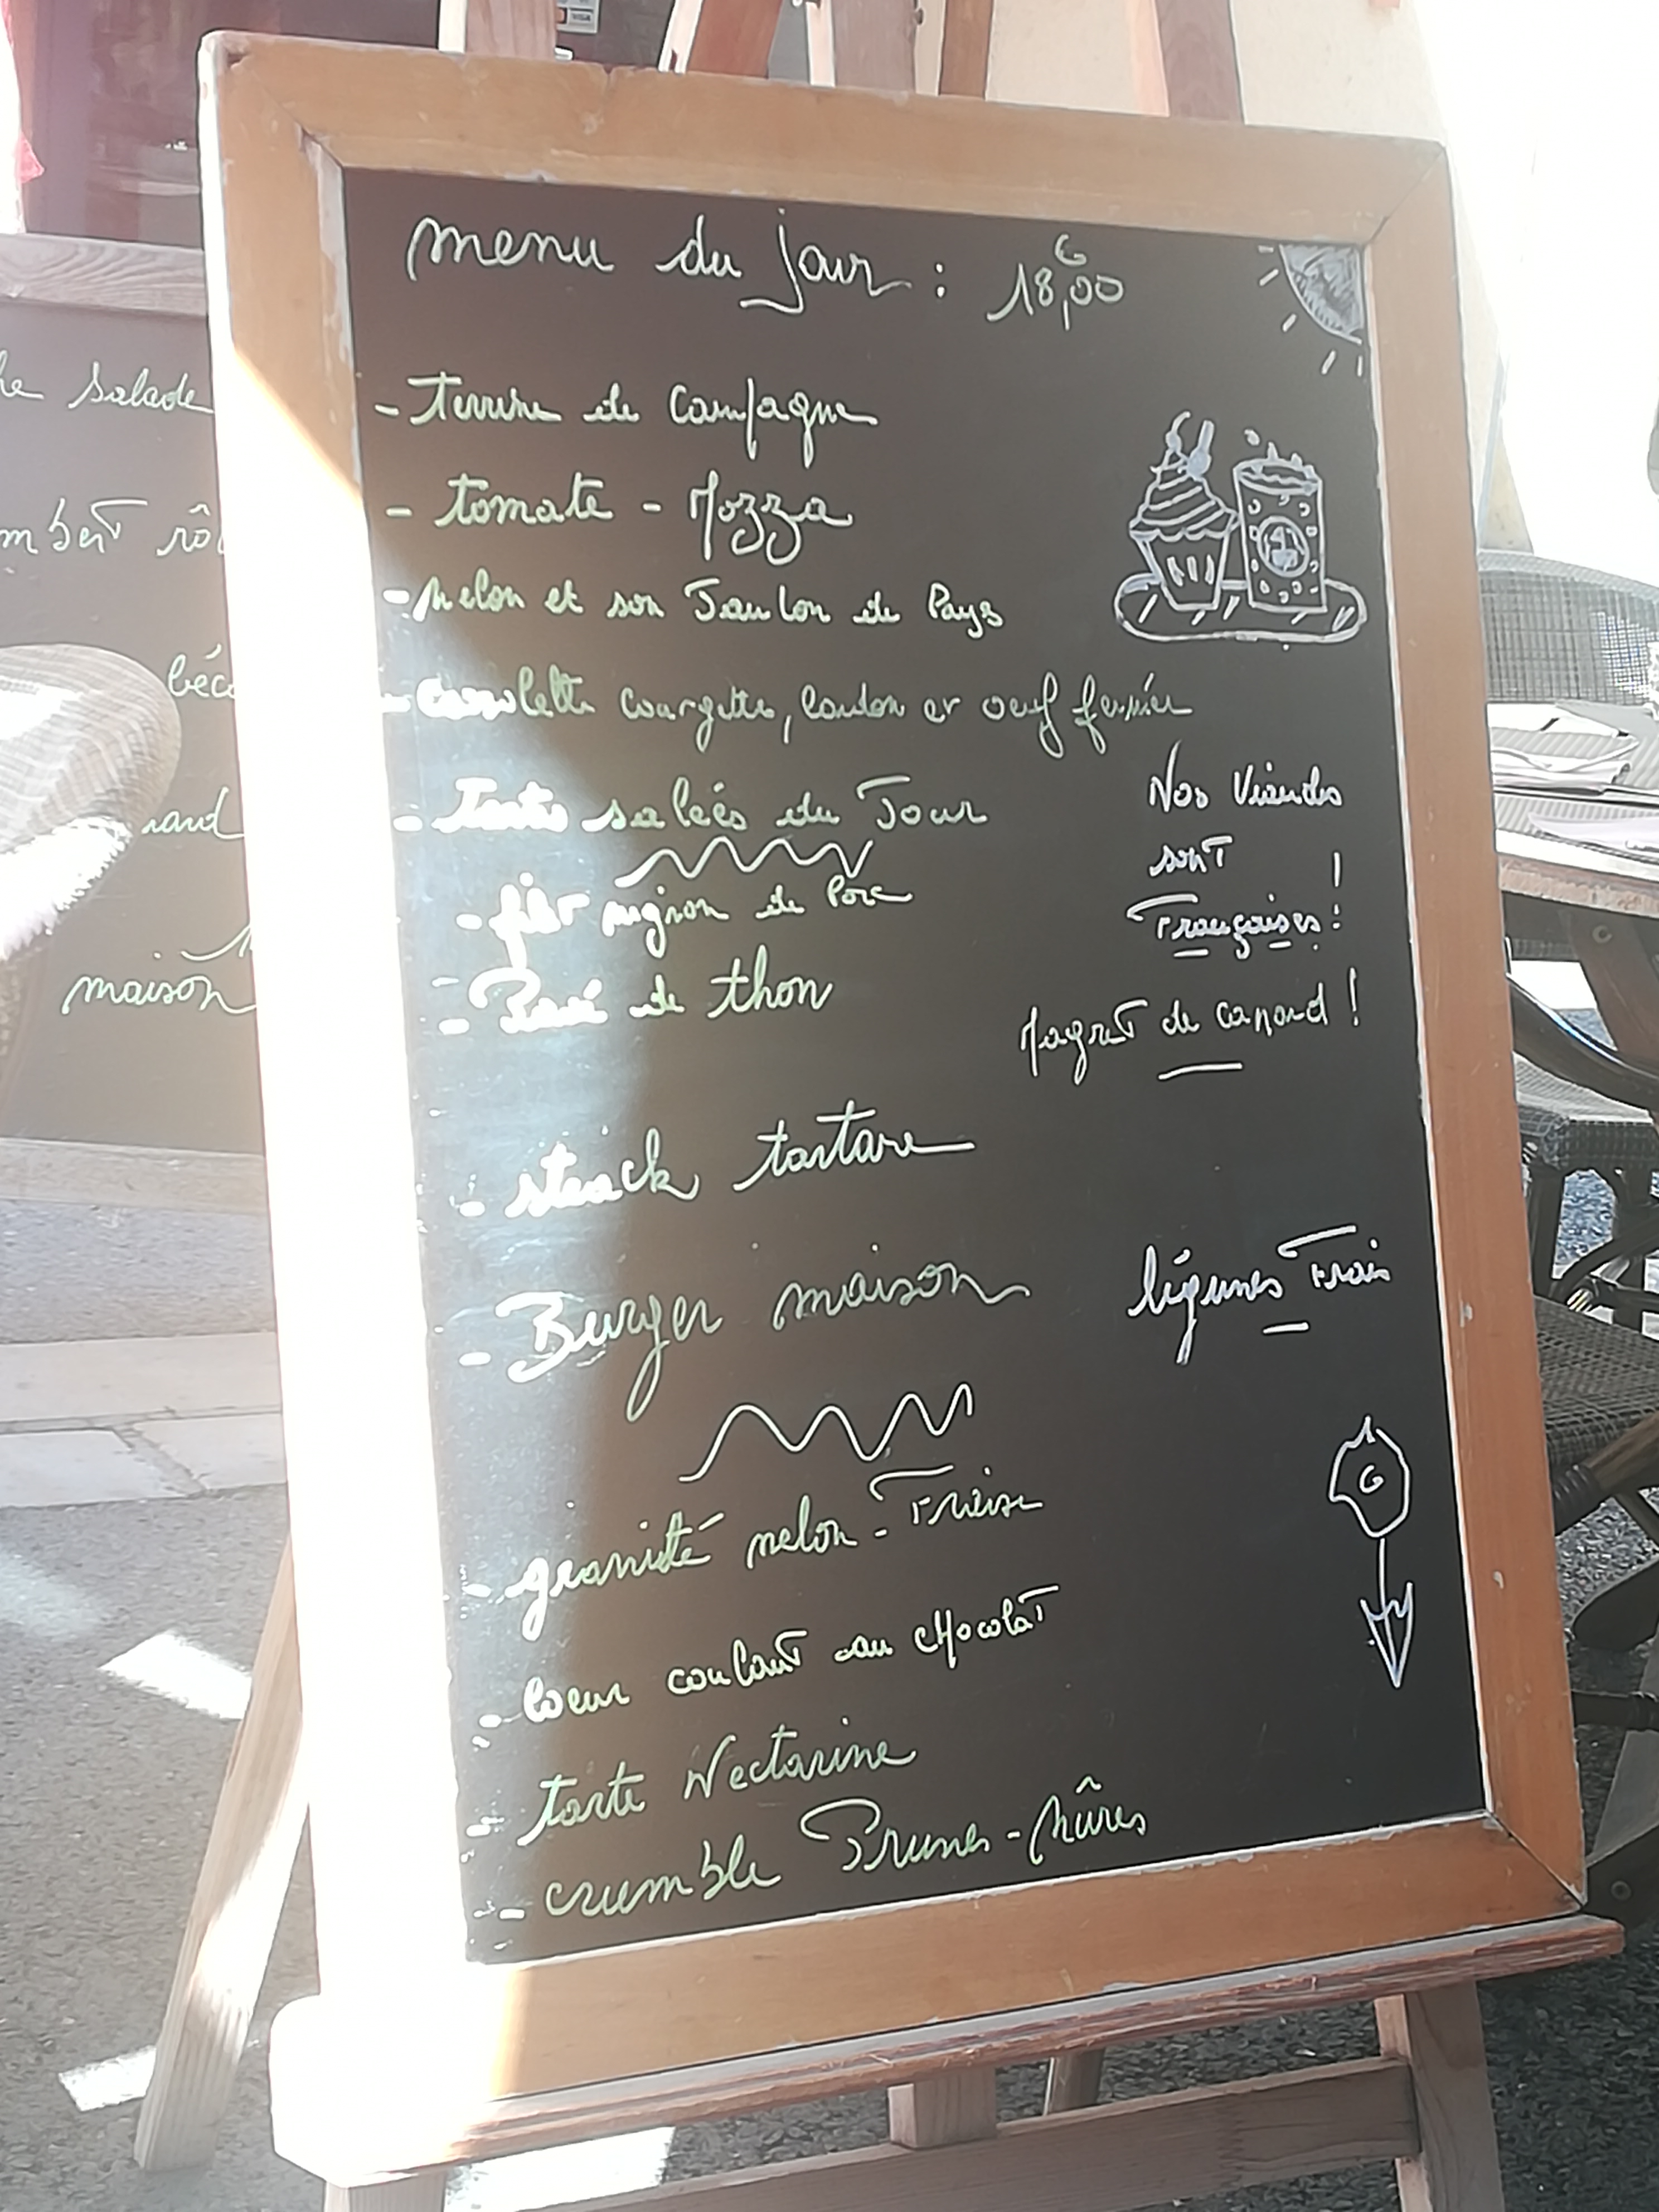 menu du jour : 18,00 €
- Terrine de Campagne
- tomate - Mozza
- melon et son Jambon de Pays
- Cassolette courgette, lardon et oeuf fermier
- Tartes salées du Jour
- filet mignon de Porc
- Pavé de thon
- steack tartare
- Burger maison
- granité melon - Fraise
- Coeur coulant au cHocolat
- tarte Nectarine
- crumble Prunes - Mûres
Nos Viandes
sont
Françaises !
Magret de canard !
légumes Frais
salade
rô
béc
nard
maison
VISA